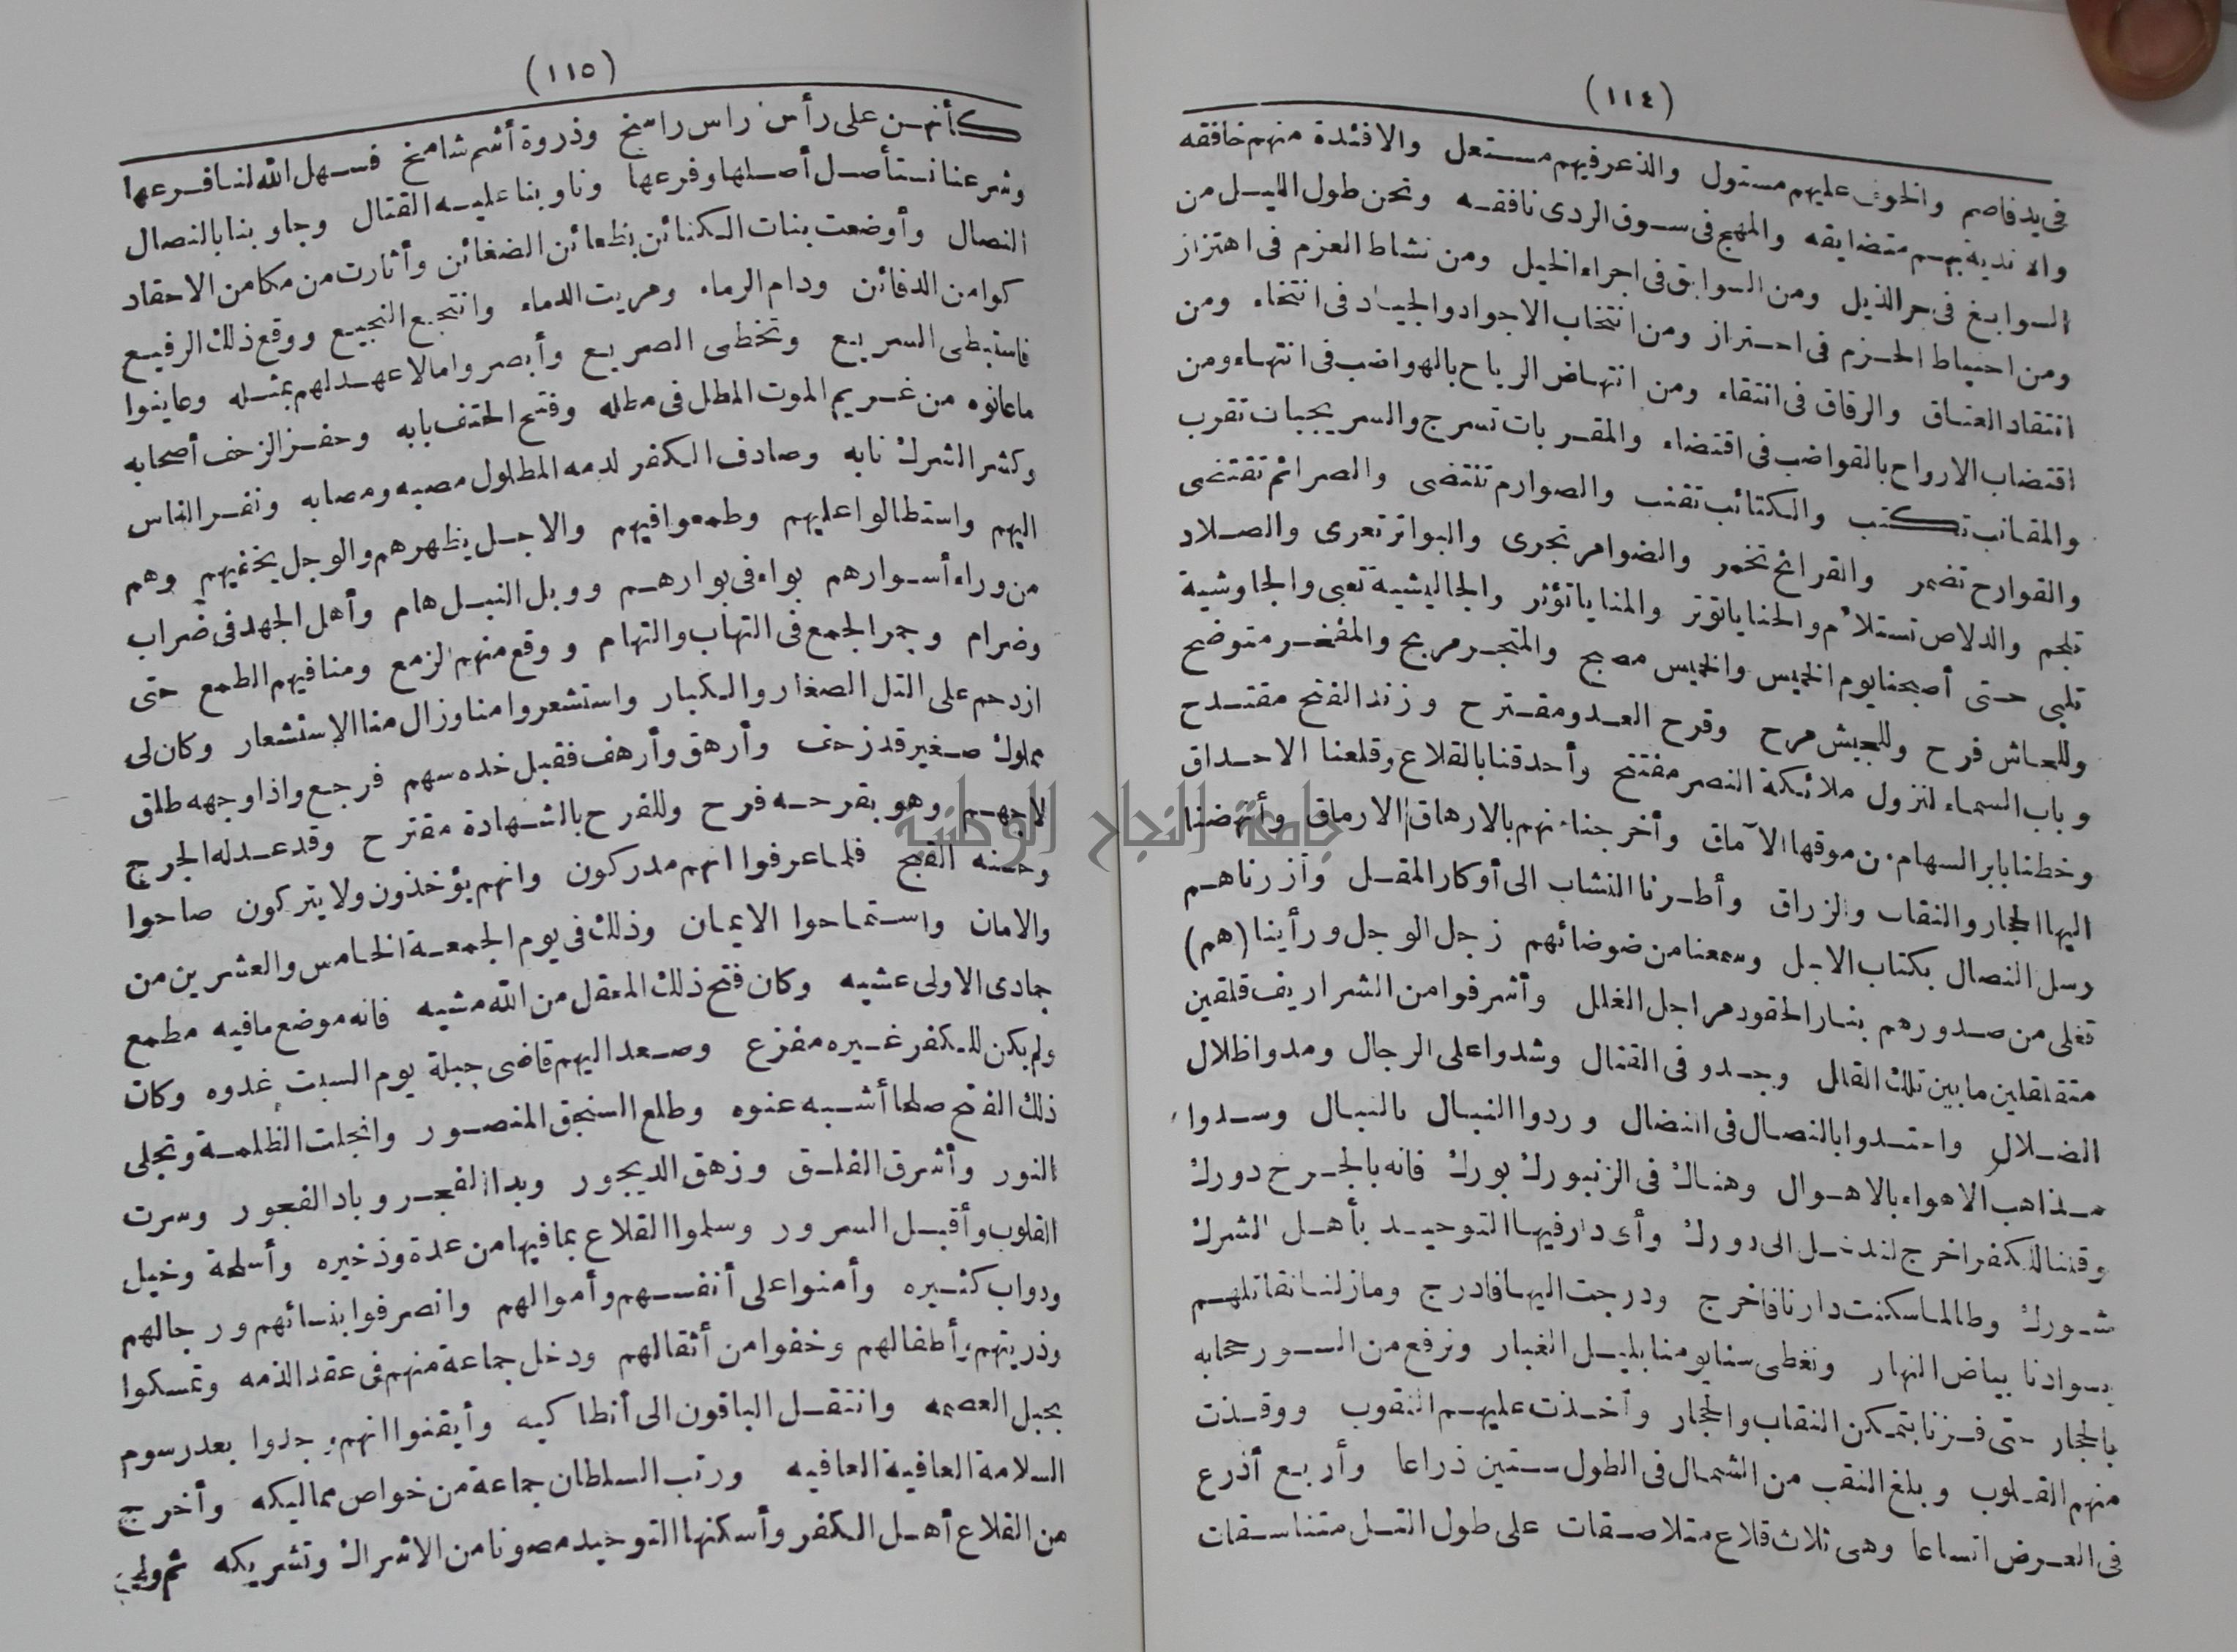 (١١٤)
فى يد فاصم والخوف عليهم مستول والذعر فيهم مستعل والافئدة منهم خافقه
والاندية بهم متضايقه والمهج فى سوق الردى نافقه ونحن طول الليل من
السوابغ فى جر الذيل ومن السوابق فى اجراء الخيل ومن نشاط العزم فى اهتزاز
ومن احتياط الحزم فى احتراز ومن انتخاب الاجواد والجياد فى انتخاء ومن
انتقاد العتاق والرقاق فى انتقاء ومن انتهاض الرياح بالهواضب فى انتهاء ومن
اقتضاب الارواح بالقواضب فى اقتضاء والمقربات تسرج والسريجيات تقرب
والمقانب تكتب والكتائب تقنب والصوارم تنتضى والصرائم تقتضى
والقوارح تضمر والقرائح تخمر والضوامر تجرى والبواتر تعرى والصلاد
تلجم والدلاص تستلأم والحنايا توتر والمنايا تؤثر والجاليشية تعبى والجاوشية
تلبى حتى أصبحنا يوم الخميس والخميس مصبح والمتجر مربح والمفخر متوضح
وللعاش فرح وللجيش مرح وقرح العدو مقترح وزند الفتح مقتدح
وباب السماء لنزول ملائكة النصر مفتتح وأحدقنا بالقلاع وقلعنا الاحداق
وخطنا بابر السهام من موقها الآماق وأخرجناهم بالارهاق الارماق وأنهضنا
اليها الحجار والنقاب والزراق وأطرنا النشاب الى أوكار المقل وأزرناهم
رسل النصال بكتاب الاجل وسمعنا من ضوضائهم زجل الوجل ورأينا (هم)
تغلى من صدورهم بنار الحقود مراجل الغلل وأشرفوا من الشراريف قلقين
متقلقلين ما بين تلك القلل وجدو فى القتال وشدوا على الرجال ومدوا ظلال
الضلال واعتدوا بالنصال فى النضال وردوا النبال بالنبال وسدوا
مذاهب الاهواء بالاهوال وهناك فى الزنبورك بورك فانه بالجرخ دورك
وقلنا للكفر اخرج لندخل الى دورك وأى دار فيها التوحيد بأهل الشرك
شورك وطالما سكنت دارنا فاخرج ودرجت اليها فادرج ومازلنا نقاتلهم
بسوادنا بياض النهار ونغطى سنا يومنا بليل الغبار ونرفع من السور حجابه
بالحجار حتى فزنا بتمكن النقاب والحجار وأخذت عليهم النقوب ووقذت
منهم القلوب وبلغ النقب من الشمال فى الطول ستين ذراعا وأربع أذرع
فى العرض اتساعا وهى ثلاث قلاع متلاصقات على طول التل متناسقات
(١١٥)
كأنهن على رأس راس راسخ وذروة أشم شامخ فسهل الله لنا فرعها
وشرعنا نستأصل أصلها وفرعها وناوبنا عليه القتال وجاوبنا بالنصال
النصال وأوضعت بنات الكنائن بظعائن الضغائن وأثارت من مكامن الاحقاد
كوامن الدفائن ودام الرماء ومريت الدماء وانتجع النجيع ووقع ذلك الرفيع
فاستبطى السريع وتخطى الصريع وأبصروا مالا عهد لهم بمثله وعاينوا
ماعانوه من غريم الموت المطل فى مطله وفتح الحتف بابه وحفز الزحف أصحابه
وكشر الشرك نابه وصادف الكفر لدمه المطلول مصبه ومصابه ونفر الناس
اليهم واستطالوا عليهم وطمعوا فيهم والاجل يظهرهم والوجل يخفيهم وهم
من وراء أسوارهم بواء فى بوارهم ووبل النبل هام وأهل الجهد فى ضراب
وضرام وجمر الجمع فى التهاب والتهام ووقع منهم الزمع ومنا فيهم الطمع حتى
ازدحم على التل الصغار والكبار واستشعروا منا وزال منا الاستشعار وكان لى
مملوك صغير قد زحف وأرهق وأرهف فقبل خده سهم فرجع واذا وجهه طلق
لاجهم وهو بقرحه فرح وللفرح بالشهادة مقترح وقد عدله الجرح
وحسنه القبح فلما عرفوا انهم مدركون وانهم يؤخذون ولا يتركون صاحوا
والامان واستماحوا الايمان وذلك فى يوم الجمعة الخامس والعشرين من
جمادى الاولى عشيه وكان فتح ذلك المعقل من الله مشيه فانه موضع مافيه مطمع
ولم يكن للكفر غيره مفزع وصعد اليهم قاضى جبلة يوم السبت غدوه وكان
ذلك الفتح صلحا أشبه عنوه وطلع السنجق المنصور وانجلت الظلمة وتجلى
النور وأشرق الفلق وزهق الديجور وبدا الفجر وباد الفجور وسرت
القلوب وأقبل السرور وسلموا القلاع بما فيها من عدة وذخيره وأسلحة وخيل
ودواب كثيره وأمنوا على أنفسهم وأموالهم وانصرفوا بنسائهم ورجالهم
وذريتهم وأطفالهم وخفوا من أثقالهم ودخل جماعة منهم فى عقد الذمه وتمسكوا
بحبل العصمه وانتقل الباقون الى أنطاكيه وأيقنوا انهم وجدوا بعد رسوم
السلامة العافية العافيه ورتب السلطان جماعة من خواص مماليكه وأخرج
من القلاع أهل الكفر وأسكنها التوحيد مصونا من الاشراك وتشريكه ثم ولى
جامعة النجاح الوطنية